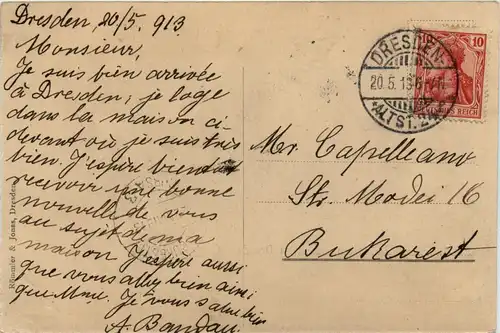 Dresden, 20/5. 913
Monsieur,
Je suis bien arrivée
à Dresden; je loge
dans la maison ci-
devant où je suis très
bien. J'espère bientôt
recevoir une bonne
nouvelle de vous
au sujet de ma
maison J'espère aussi
que vous allez bien ainsi
que Mme. Je vous salue bien
A. Bandau
Mr. Capelleano
Str. Modei 16
Bukarest
DRESDEN-
20.5.13
ALTST. 24
10
REICH
Römmler & Jonas, Dresden